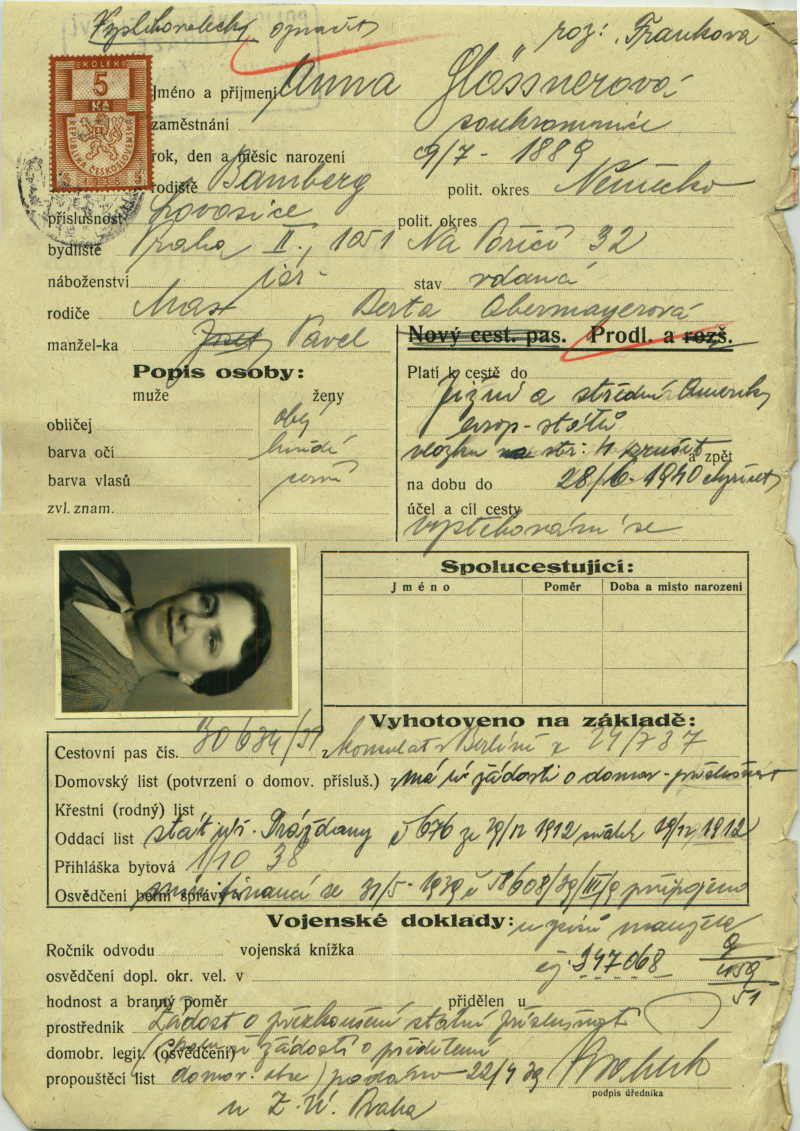 Vystěhovalecký opravit roz: Franková
KOLEK
5
Kč
REPUBLIKA ČESKOSLOVENSKÁ
Jméno a příjmení Anna Glässnerová
zaměstnání soukromnice
rok, den a měsíc narození 9/7 - 1889
rodiště Bamberg polit. okres Německo
příslušnost Lovosice polit. okres
bydliště Praha II., 1051 Na Poříčí 32
náboženství isr. stav vdaná
rodiče Max Berta Obermayerová
manžel-ka Josef Pavel
Nový cest. pas. Prodl. a rozš.
Popis osoby:
muže ženy
obličej obl.
barva očí hnědé
barva vlasů černé
zvl. znam.
Platí k cestě do
Jižní a střední Ameriky
evrop. států
vložku na str: 4 zrušit a zpět
na dobu do 28/6 - 1940
účel a cíl cesty
vystěhování se
Spolucestující:
Jméno Poměr Doba a místo narození
Vyhotoveno na základě:
Cestovní pas čís. 30634/37 Konsulat v Berlíně z 29/7 37
Domovský list (potvrzení o domov. přísluš.) má v žádosti o domov. příslušnost
Křestní (rodný) list
Oddací list stát. úř. Drážďany č 676 ze 29/12 1912 sňatek 29/12 1912
Přihláška bytová 1/10 38
Osvědčení berní správy financí ze 31/5 - 1939 č 58608/39/III/9 připojeno
Vojenské doklady:
u spisů manžela
Ročník odvodu vojenská knížka
čj. 347068
osvědčení dopl. okr. vel. v
hodnost a branný poměr přidělen u
prostředník Žádost o přezkoušení státní příslušnosti
domobr. legit. (osvědčení) žádostí o přidělení
propouštěcí list domov. obce) podáno 22/4 39
podpis úředníka
u Z. Ú. Praha